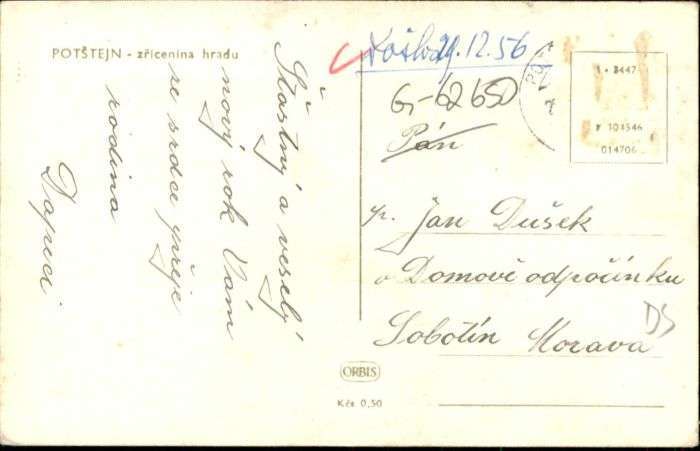 POTŠTEJN - zřícenina hradu
Šťastný a veselý
nový rok Vám
ze srdce přeje
rodina
Došlo 29.12.56
G-62650
Pán
p. Jan Dušek
v Domově odpočinku
Sobotín Morava
DS
1 - 8447
F 104546
014706
ORBIS
Kčs 0,50